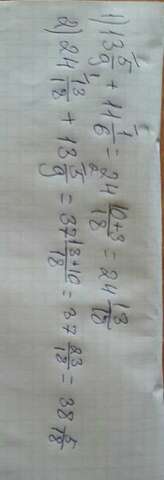 1) 13 5/9 + 11 1/6 = 24 (10+3)/18 = 24 13/18
2) 24 13/18 + 13 5/9 = 37 (13+10)/18 = 37 23/18 = 38 5/18